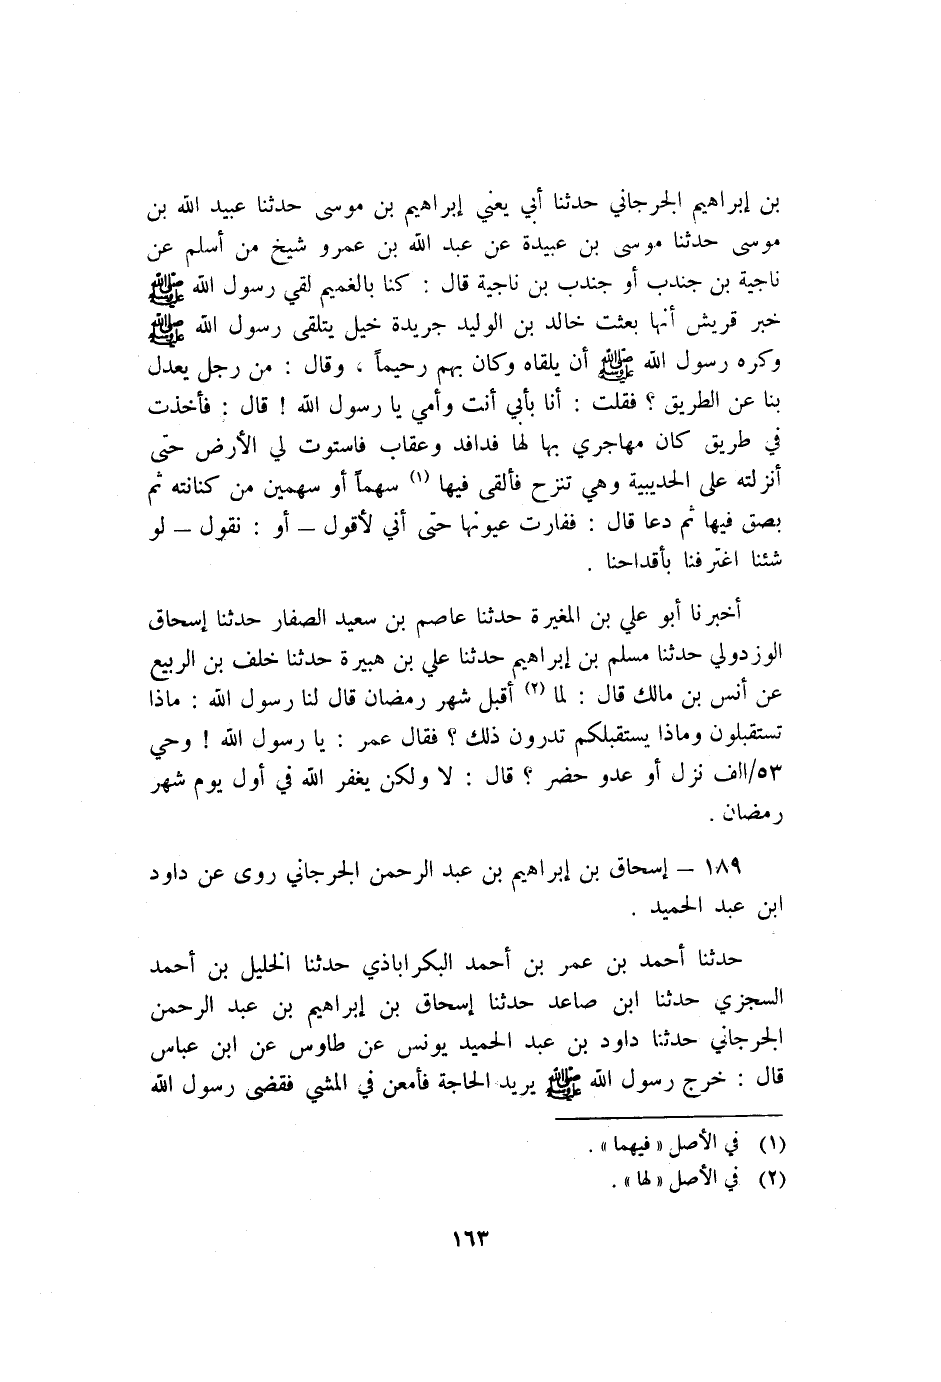 بن إبراهيم الجرجاني حدثنا أبي يعني إبراهيم بن موسى حدثنا عبيد الله بن
موسى حدثنا موسى بن عبيدة عن عبد الله بن عمرو شيخ من أسلم عن
ناجية بن جندب أو جندب بن ناجية قال : كنا بالغميم لقي رسول الله ﷺ
خبر قريش أنها بعثت خالد بن الوليد جريدة خيل يتلقى رسول الله ﷺ
وكره رسول الله ﷺ أن يلقاه وكان بهم رحيماً ، وقال : من رجل يعدل
بنا عن الطريق ؟ فقلت : أنا بأبي أنت وأمي يا رسول الله ! قال : فأخذت
في طريق كان مهاجري بها لها فدافد وعقاب فاستوت لي الأرض حتى
أنزلته على الحديبية وهي تنزح فألقى فيها (١) سهماً أو سهمين من كنانته ثم
بصق فيها ثم دعا قال : ففارت عيونها حتى أني لأقول – أو : نقول – لو
شئنا اغترفنا بأقداحنا .
أخبرنا أبو علي بن المغيرة حدثنا عاصم بن سعيد الصفار حدثنا إسحاق
الوزدولي حدثنا مسلم بن إبراهيم حدثنا علي بن هبيرة حدثنا خلف بن الربيع
عن أنس بن مالك قال : لما (٢) أقبل شهر رمضان قال لنا رسول الله : ماذا
تستقبلون وماذا يستقبلكم تدرون ذلك ؟ فقال عمر : يا رسول الله ! وحي
٥٣/الف نزل أو عدو حضر ؟ قال : لا ولكن يغفر الله في أول يوم شهر
رمضان .
١٨٩ – إسحاق بن إبراهيم بن عبد الرحمن الجرجاني روى عن داود
ابن عبد الحميد .
حدثنا أحمد بن عمر بن أحمد البكراباذي حدثنا الخليل بن أحمد
السجزي حدثنا ابن صاعد حدثنا إسحاق بن إبراهيم بن عبد الرحمن
الجرجاني حدثنا داود بن عبد الحميد يونس عن طاوس عن ابن عباس
قال : خرج رسول الله ﷺ يريد الحاجة فأمعن في المشي فقضى رسول الله
(١) في الأصل « فيهما » .
(٢) في الأصل « لها » .
١٦٣